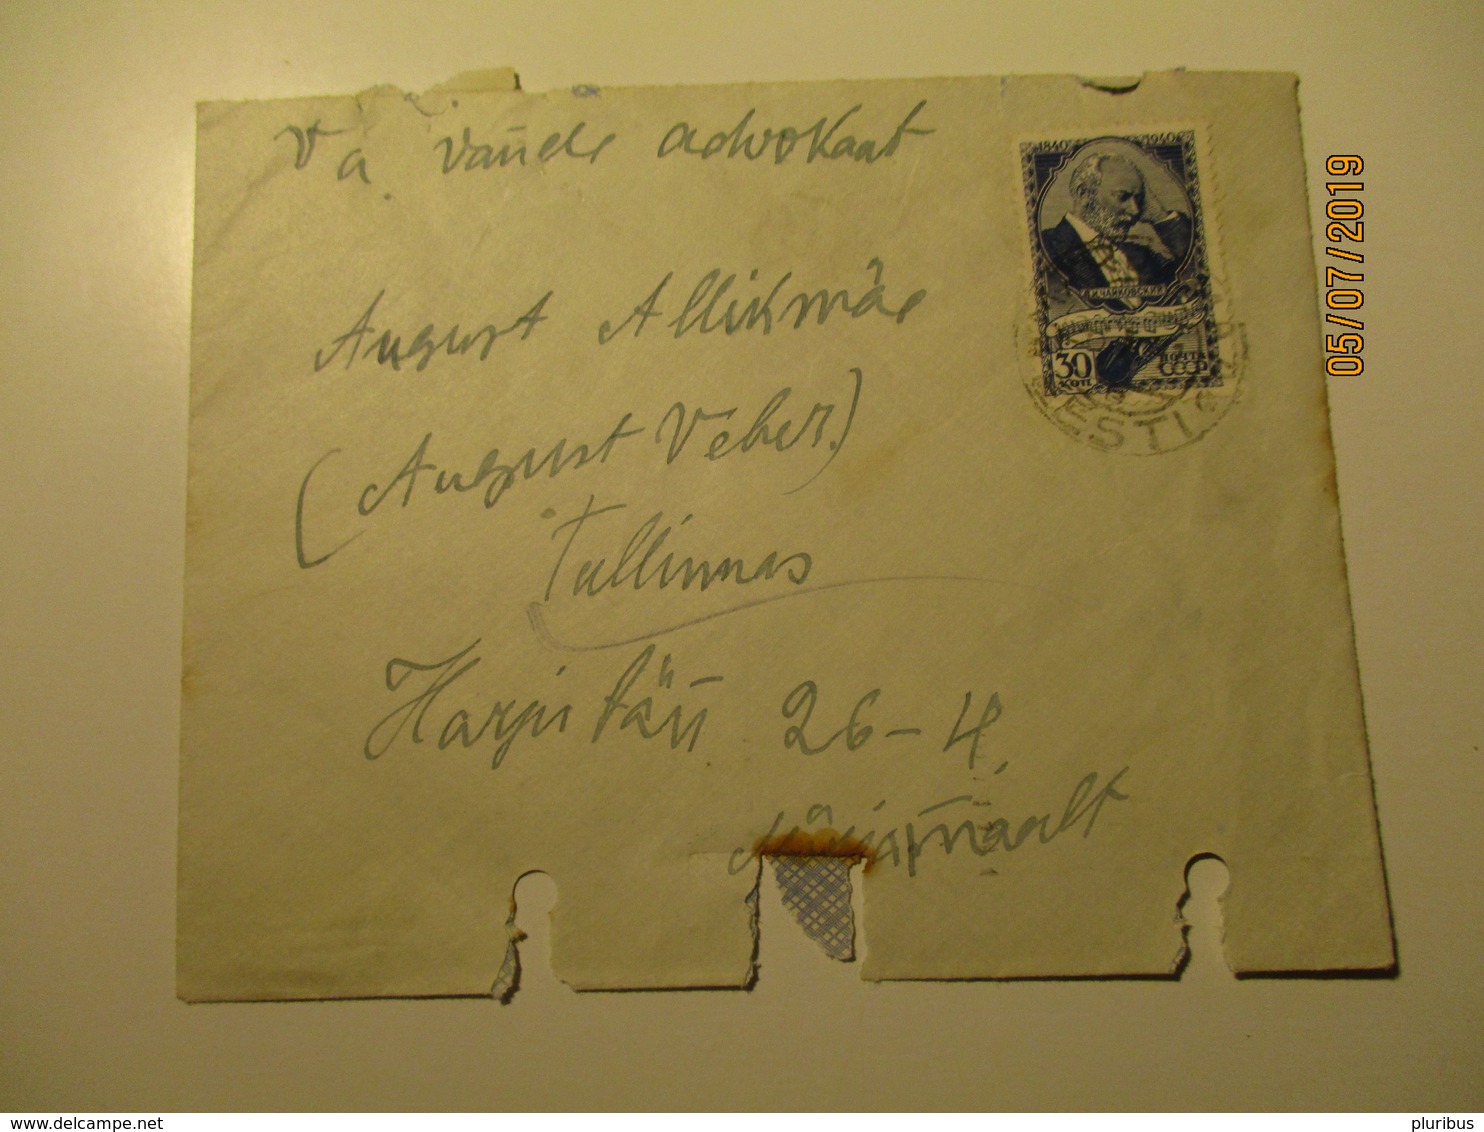 Va vande advokaat
1840 1940
August Allikmäe
П.И.ЧАЙКОВСКИЙ
30 КОП ПОЧТА СССР
EESTI
(August Veber.)
Tallinnas
Harju tän 26-4,
05/07/2019
delcampe.net
pluribus